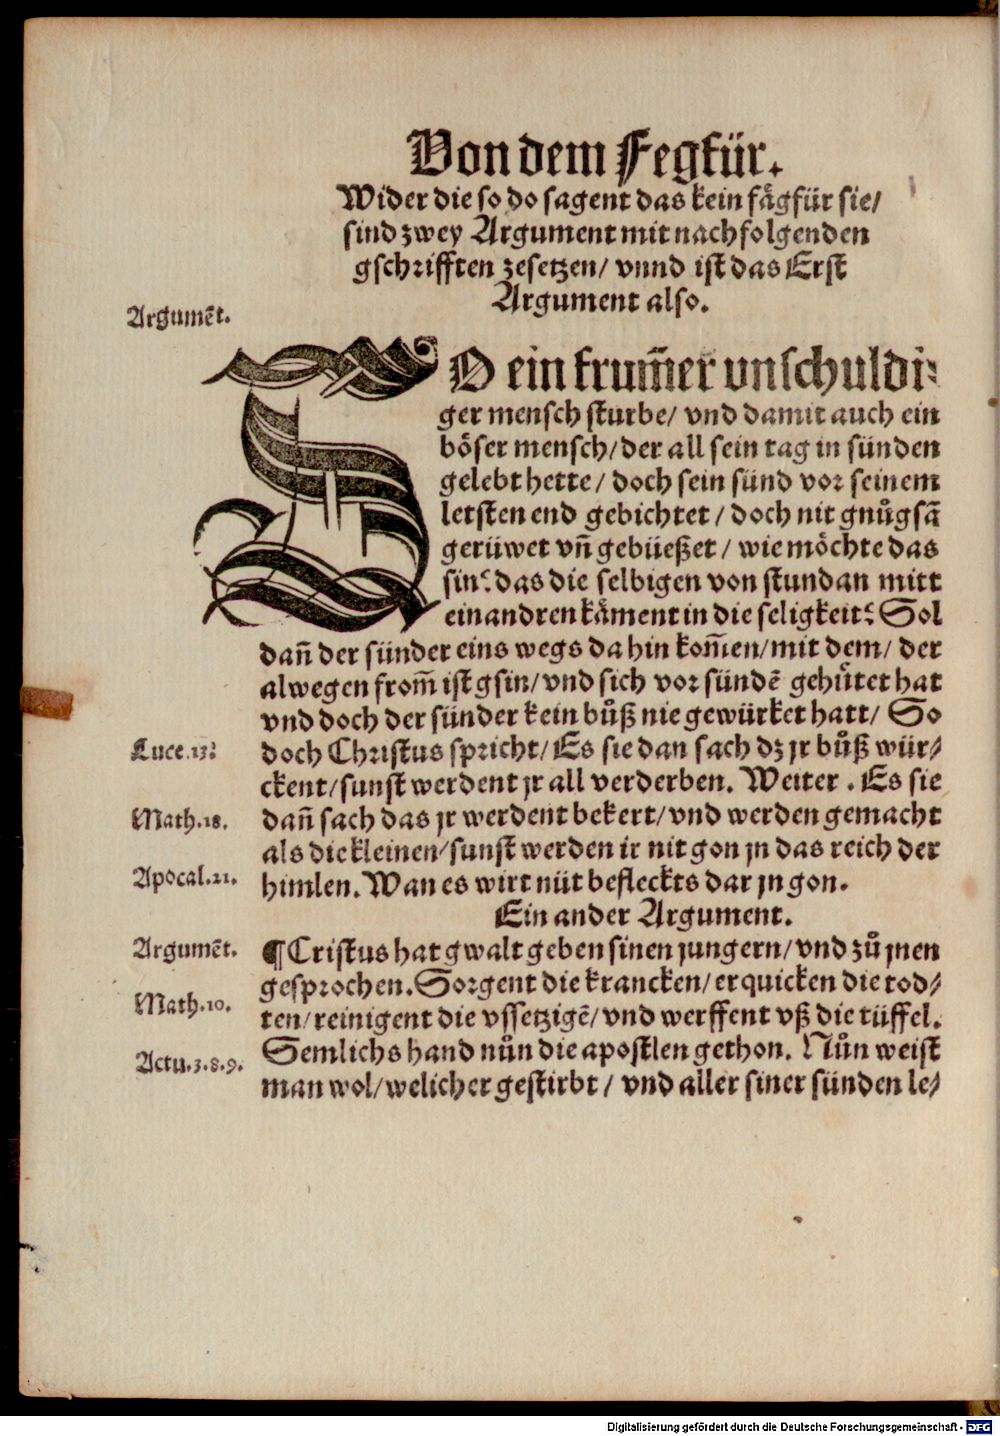 Von dem Fegfür.
Wider die so do sagent das kein fågfür sie/
sind zwey Argument mit nachfolgenden
gschrifften zesetzen/ vnnd ist das Erst
Argument also.
Argumēt.
SO ein frum̄er vnschuldi⸗
ger mensch sturbe/ vnd damit auch ein
böser mensch/ der all sein tag in sünden
gelebt hette/ doch sein sünd vor seinem
letsten end gebichtet/ doch nit gnůgsā
gerüwet vn̄ gebüeßet/ wie möchte das
sin? das die selbigen von stund an mitt
einandren kåment in die seligkeit? Sol
dan̄ der sünder eins wegs da hin kom̄en/ mit dem/ der
alwegen from̄ ist gsin/ vnd sich vor sündē gehütet hat
vnd doch der sünder kein bůß nie gewürket hatt/ So
Luce.13.
doch Christus spricht/ Es sie dan sach dz jr bůß wür/
ckent/ sunst werdent jr all verderben. Weiter. Es sie
Math.18.
dan̄ sach das jr werdent bekert/ vnd werden gemacht
als die kleinen/ sunst werden ir nit gon jn das reich der
Apocal.21.
himlen. Wan es wirt nüt befleckts dar jn gon.
Ein ander Argument.
Argumēt.
¶ Cristus hat gwalt geben sinen jungern/ vnd zů jnen
gesprochen. Sorgent die krancken/ erquicken die tod/
Math.10.
ten/ reinigent die vssetzigē/ vnd werffent vß die tüffel.
Semlichs hand nůn die apostlen gethon. Nůn weist
Actu.3.8.9.
man wol/ welicher gestirbt/ vnd aller siner sünden le/
Digitalisierung gefördert durch die Deutsche Forschungsgemeinschaft - DFG